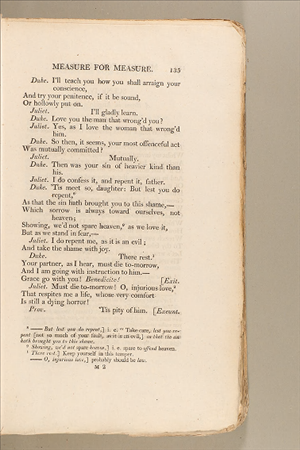 MEASURE FOR MEASURE. 135
Duke. I'll teach you how you shall arraign your
conscience,
And try your penitence, if it be sound,
Or hollowly put on.
Juliet. I'll gladly learn.
Duke. Love you the man that wrong'd you?
Juliet. Yes, as I love the woman that wrong'd
him.
Duke. So then, it seems, your most offenceful act
Was mutually committed?
Juliet. Mutually.
Duke. Then was your sin of heavier kind than
his.
Juliet. I do confess it, and repent it, father.
Duke. 'Tis meet so, daughter: But lest you do
repent,
As that the sin hath brought you to this shame,—
Which sorrow is always toward ourselves, not
heaven;
Showing, we'd not spare heaven, as we love it,
But as we stand in fear,—
Juliet. I do repent me, as it is an evil;
And take the shame with joy.
Duke. There rest.
Your partner, as I hear, must die to-morrow,
And I am going with instruction to him.—
Grace go with you! Benedicite! [Exit.
Juliet. Must die to-morrow! O, injurious love,
That respites me a life, whose very comfort
Is still a dying horror!
Prov. 'Tis pity of him. [Exeunt.
—— But lest you do repent,] i. e. "Take care, lest you re-
pent [not so much of your fault, as it is an evil,] as that the sin
hath brought you to this shame.
Showing, we'd not spare heaven,] i. e. spare to offend heaven.
There rest.] Keep yourself in this temper.
—— O, injurious love,] probably should be law.
M 2